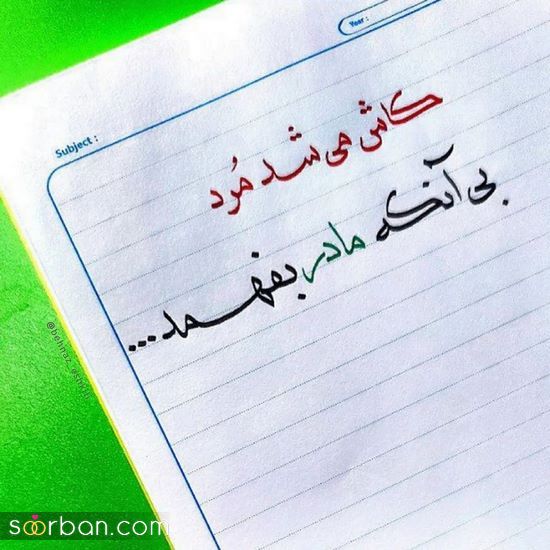 Year :
Subject :
کاش می شد مُرد
بی آنکه مادر بفهمد...
soorban.com